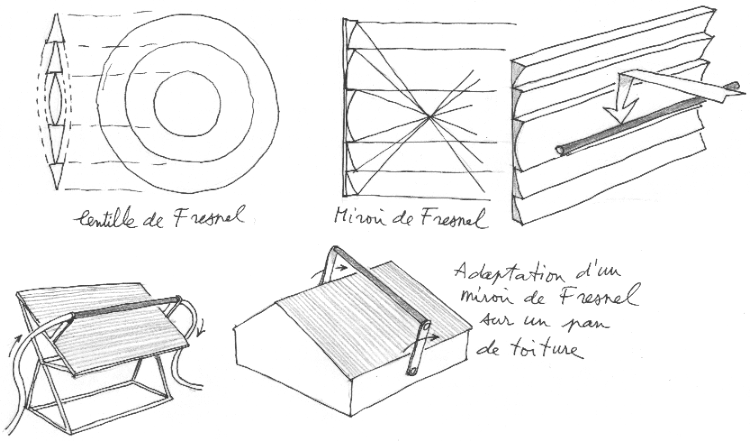 lentille de Fresnel
Miroir de Fresnel
Adaptation d'un
miroir de Fresnel
sur un pan
de toiture